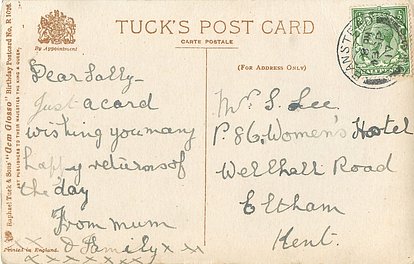 TUCK'S POST CARD
CARTE POSTALE
By Appointment
(FOR ADDRESS ONLY)
Dear Sally -
Just a card
wishing you many
happy returns of
the day
From Mum
& Family x x x
x x x x x x x x
S. Lee
P 86, Women's Hostel
Wellhall Road
Eltham
Kent.
BANSTEAD
Raphael Tuck & Sons' "Gem Glosso" Birthday Postcard No. R 1098.
ART PUBLISHERS TO THEIR MAJESTIES THE KING & QUEEN.
Printed in England.